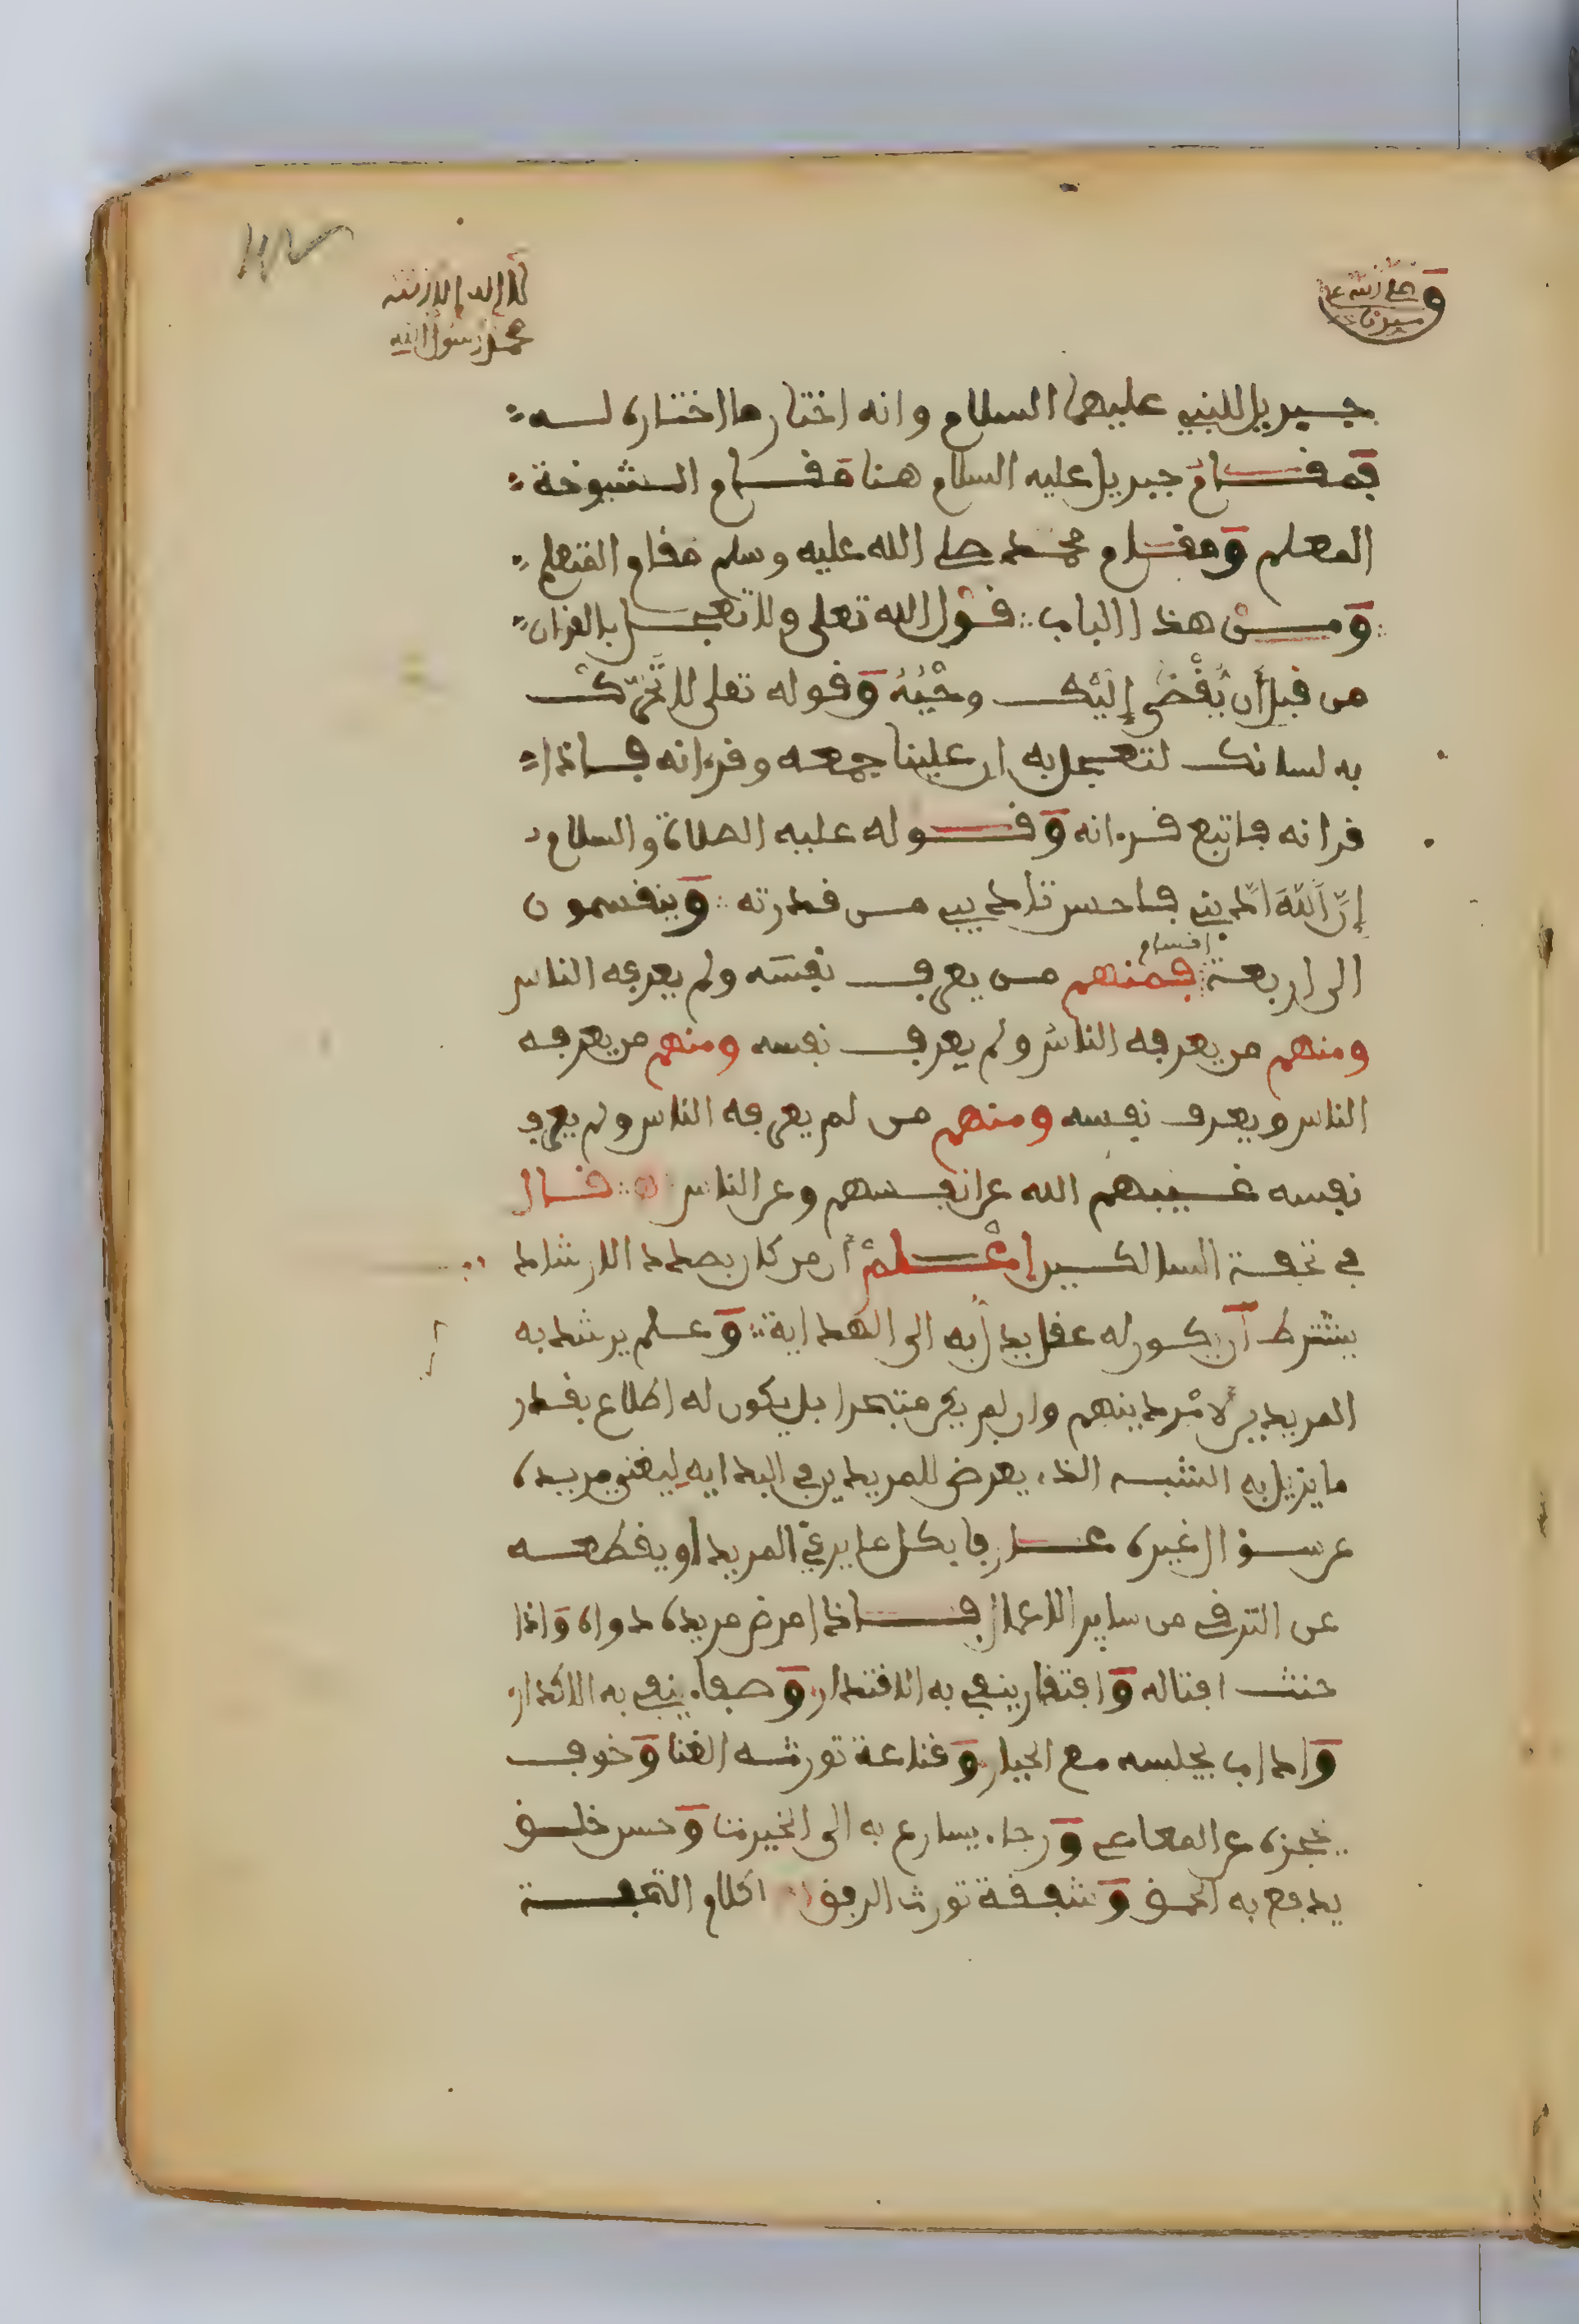 لا إله إلا الله
محمد رسول الله
جبريل للنبي عليهما السلام وانه اختار ما اختاره له
فمقام جبريل عليه السلام هنا مقام الشيوخة
المعلم ومقام محمد صلى الله عليه وسلم مقام المتعلم
ومن هذا الباب قول الله تعلى ولا تعجل بالقرءان
من قبل أن يُقْضَى إِلَيْك وحْيُهُ وقوله تعلى لا تُحَرِّكْ
به لسانك لتعجل به ان علينا جمعه وقرءانه فاذا
قرانه فاتبع قرءانه وقوله عليه الصلاة والسلام
إِنَّ اللَّهَ ادّبني فاحسن تاديبي من قدرته وينقسمون
الى اربعة اقسام فمنهم من يعرف نفسه ولم يعرفه الناس
ومنهم من يعرفه الناس ولم يعرف نفسه ومنهم من يعرفه
الناس ويعرف نفسه ومنهم من لم يعرفه الناس ولم يعرف
نفسه غيبهم الله عن انفسهم وعن الناس قال
في تحفة السالكين إعْلَمْ أن من كان بصدد الارشاد
يشترط أن يكون له عقل يدأبه الى الهداية وعلم يرشد به
المريدين لأمر دينهم وان لم يكن متبحرا بل يكون له اطلاع بقدر
ما يزيل به الشبه الذي يعرض للمريدين في البدايه ليغني مريده
عن سؤال غيره عارفا بكل ما يرقي المريد او يقطعه
عن الترقي من ساير الاعمال فاذا مرض مريده دواه واذا
افتاله وافتقار ينفي به الاقتدار وصفاء ينفي به الاكدار
واداب يجلسه مع الجبار وقناعة تورثه الغنا وخوف
يحجزه عن المعاصي ورجاء يسارع به الى الخيرات وحسن خلق
يدفع به الحمق وشفقة تورث الرفق كلام التحفة